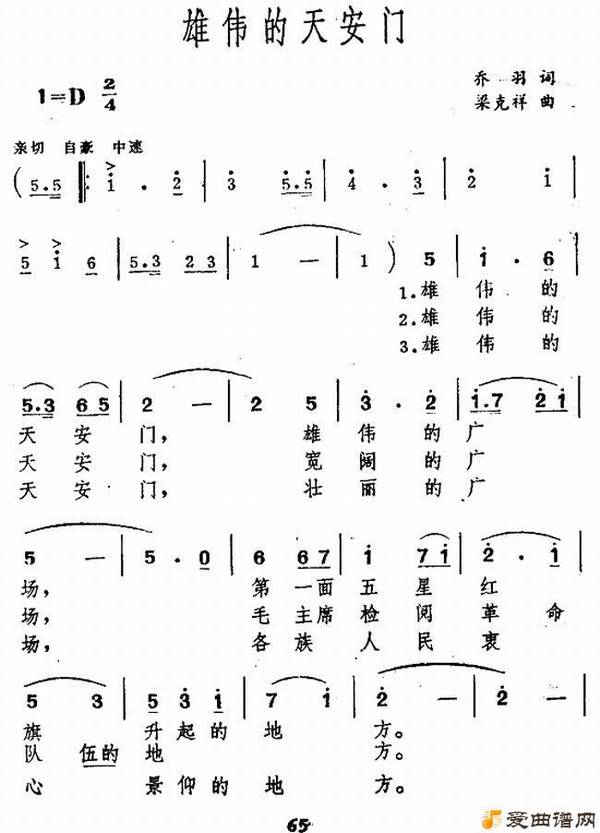 雄伟的天安门
1=D 2/4
乔羽词
梁克祥曲
亲切 自豪 中速
( 5.5 |: 1 . 2 | 3 5.5 | 4 . 3 | 2 1 |
5 1 6 | 5.3 2 3 | 1 — | 1 ) 5 | 1 . 6 |
1.雄 伟 的
2.雄 伟 的
3.雄 伟 的
5.3 6 5 | 2 — | 2 5 | 3 . 2 | 1.7 2 1 |
天 安 门, 雄 伟 的 广
天 安 门, 宽 阔 的 广
天 安 门, 壮 丽 的 广
5 — | 5 . 0 | 6 6 7 | 1 7 1 | 2 . 1 |
场, 第 一 面 五 星 红
场, 毛 主 席 检 阅 革 命
场, 各 族 人 民 衷
5 3 | 5 3 1 | 7 1 | 2 — | 2 — |
旗 升 起 的 地 方。
队 伍的 地 方。
心 景 仰 的 地 方。
65
爱曲谱网